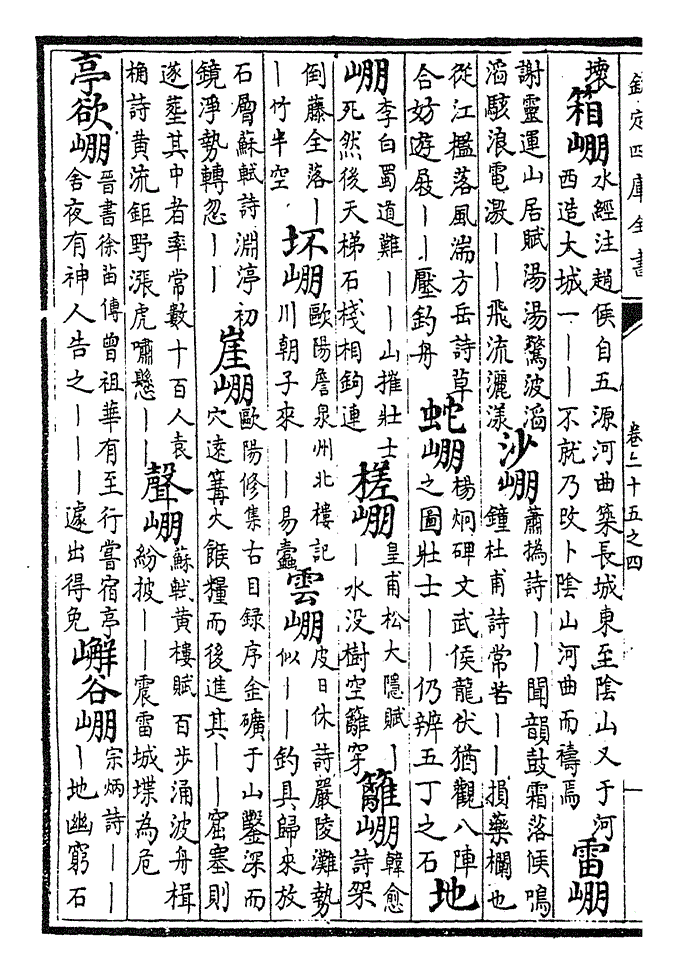 欽定四庫全書 卷二十五之四
壞 箱崩 水經注趙侯自五源河曲築長城東至陰山又于河西造大城一——不就乃改卜陰山河曲而禱焉 雷崩
謝靈運山居賦湯湯驚波滔滔駭浪電激——飛流灑漾 沙崩 蕭撝詩——聞韻鼓霜落候鳴鐘杜甫詩常苦——損藥欄也
從江檻落風湍方岳詩草合好遊展——壓釣舟 蛇崩 楊炯碑文武侯龍伏猶觀八陣之圖壯士——仍辨五丁之石 地
崩 李白蜀道難——山摧壯士死然後天梯石棧相鉤連 槎崩 皇甫松大隱賦——水没樹空籬穿 籬崩 韓愈詩架
倒藤全落——竹半空 坏崩 歐陽詹泉州北樓記川朝子來——易蠹 雲崩 皮日休詩嚴陵灘勢似——釣具歸來放
石層蘇軾詩淵渟初鏡淨勢轉忽—— 崖崩 歐陽修集古目録序金礦于山鑿深而穴遠篝火餱糧而後進其——窟塞則
遂葬其中者率常數十百人袁桷詩黄流鉅野漲虎嘯懸—— 聲崩 蘇軾黄樓賦百步涌波舟楫紛披——震雷城堞為危
亭欲崩 晉書徐苗傳曾祖華有至行嘗宿亭舍夜有神人告之———遽出得免 嶰谷崩 宗炳詩———地幽窮石